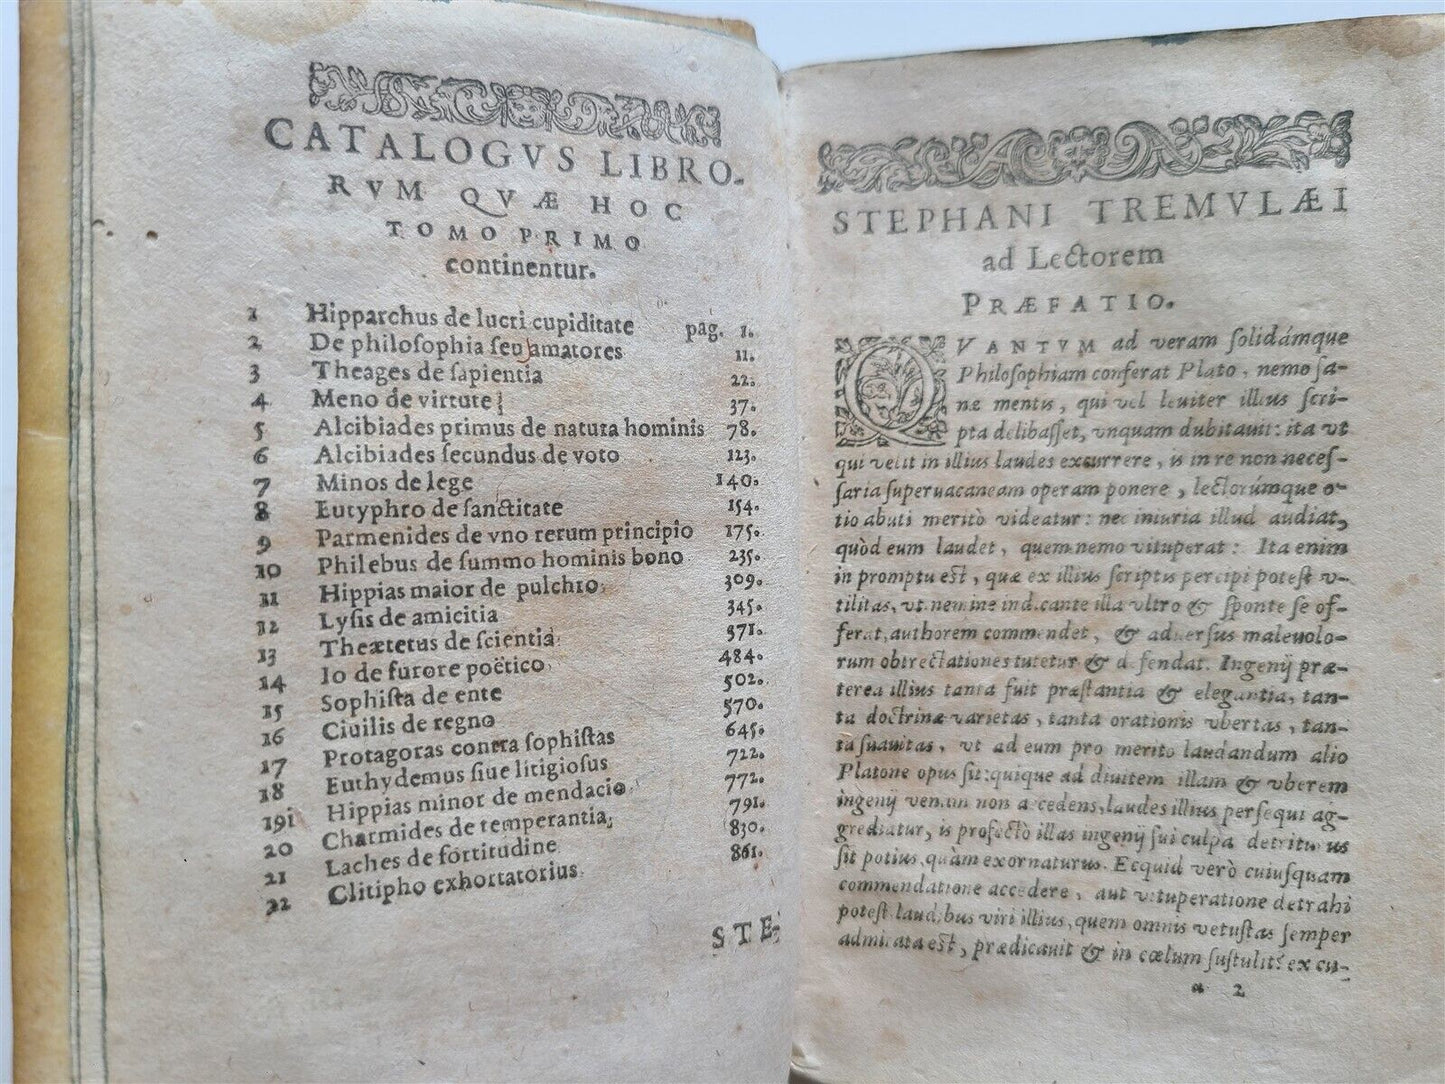 CATALOGVS LIBRO-
RVM QVÆ HOC
TOMO PRIMO
continentur.
1 Hipparchus de lucri cupiditate pag. 1.
2 De philoſophia ſeu amatores 11.
3 Theages de ſapientia 22.
4 Meno de virtute 37.
5 Alcibiades primus de natura hominis 78.
6 Alcibiades ſecundus de voto 123.
7 Minos de lege 140.
8 Eutyphro de ſanctitate 154.
9 Parmenides de vno rerum principio 175.
10 Philebus de ſummo hominis bono 235.
11 Hippias maior de pulchro 309.
12 Lyſis de amicitia 345.
13 Theætetus de ſcientia 371.
14 Io de furore poëtico 484.
15 Sophiſta de ente 502.
16 Ciuilis de regno 570.
17 Protagoras contra ſophiſtas 645.
18 Euthydemus ſiue litigioſus 722.
19 Hippias minor de mendacio 772.
20 Charmides de temperantia 791.
21 Laches de fortitudine 830.
22 Clitipho exhortatorius 861.
STE-
STEPHANI TREMVLÆI
ad Lectorem
PRÆFATIO.
QVANTVM ad veram ſolidámque
Philoſophiam conferat Plato, nemo ſa-
næ mentis, qui vel leuiter illius ſcri-
pta delibaſſet, vnquam dubitauit: ita vt
qui velit in illius laudes excurrere, is in re non neceſ-
ſaria ſuperuacaneam operam ponere, lectorúmque o-
tio abuti meritò videatur: nec iniuria illud audiat,
quòd eum laudet, quem nemo vituperat: Ita enim
in promptu eſt, quæ ex illius ſcriptis percipi poteſt v-
tilitas, vt nemine indicante illa vltro & ſponte ſe of-
ferat, authorem commendet, & aduerſus maleuolo-
rum obtrectationes tutetur & defendat. Ingenij præ-
terea illius tanta fuit præſtantia & elegantia, tan-
ta doctrinæ varietas, tanta orationis vbertas, tan-
ta ſuauitas, vt ad eum pro merito laudandum alio
Platone opus ſit: quique ad diuitem illam & vberem
ingenij venam non accedens, laudes illius perſequi ag-
grediatur, is profectò illas ingenij ſui culpa detriturus
ſit potius, quàm exornaturus. Ecquid verò cuiuſquam
commendatione accedere, aut vituperatione detrahi
poteſt laudibus viri illius, quem omnis vetuſtas ſemper
admirata eſt, prædicauit & in cœlum ſuſtulit? ex cu-
a 2